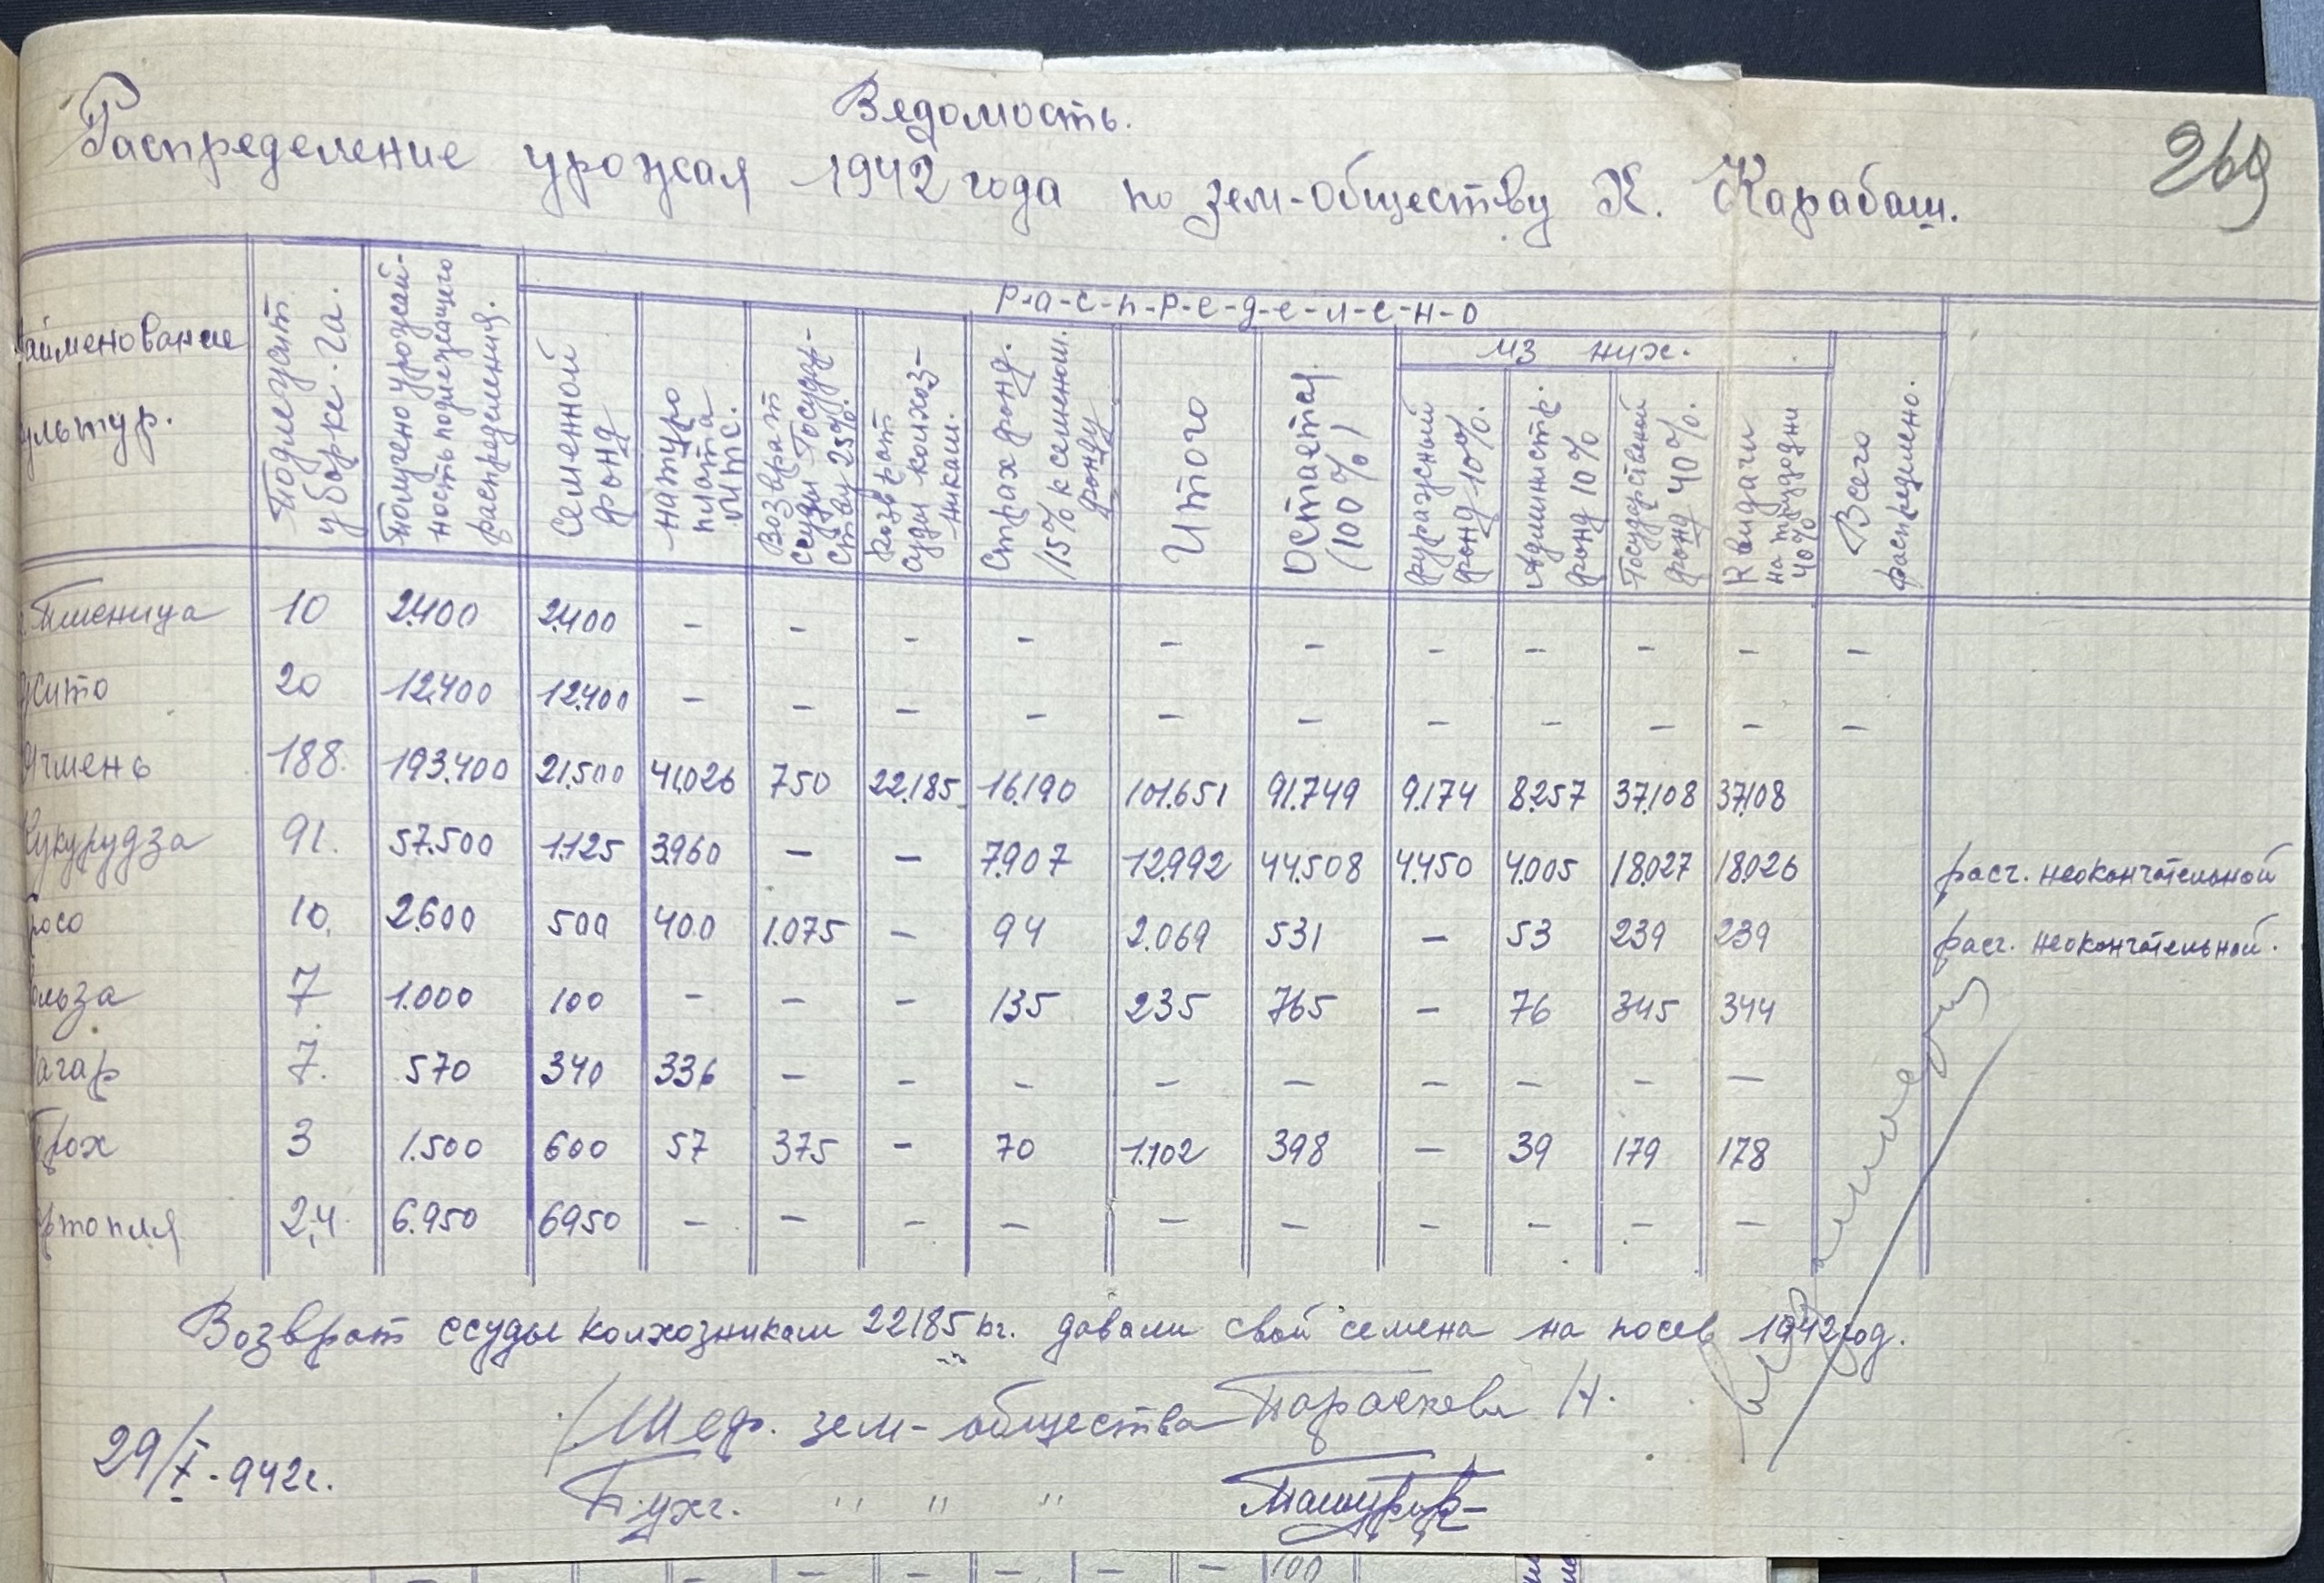 Ведомость.
Распределение урожая 1942 года по зем-обществу К. Карабаш.
269
аименование ультур.
Подлежит уборке. га.
Получено урожай- ность подлежащего распределения.
Р-а-с-п-р-е-д-е-л-е-н-о
Семенной фонд
натуро плата МТС.
Возврат ссуды Государ- ству 25%.
Возврат суды колхоз- никам.
Страх фонд. /15% к семеном. фонду
Итого
Остается. (100%)
из них.
фуражный фонд 10%.
Администр. фонд 10%
Государственой фонд 40%.
На трудодни 40%
Всего распределено.
Пшеница 10 2.400 2.400 - - - - - - - - - - -
жито 20 12.400 12.400 - - - - - - - - - - -
Ячмень 188. 193.400 21.500 41.026 750 22.185 16.190 101.651 91.749 9.174 8.257 37.108 37.108
Кукурудза 91. 57.500 1.125 3.960 - - 7.907 12.992 44.508 4.450 4.005 18.027 18.026 расч. неокончательной
росо 10. 2.600 500 400 1.075 - 94 2.069 531 - 53 239 239 расч. неокончательной.
ольза 7 1.000 100 - - - 135 235 765 - 76 345 344
агар 7. 570 340 336 - - - - - - - - -
рох 3 1.500 600 57 375 - 70 1.102 398 - 39 179 178
ртопля 2,4 6.950 6950 - - - - - - - - - -
Возврат ссуды колхозникам 22185 кг. давали свои семена на посев 1942 год.
/Шеф. зем-общества Параскева Н.
29/X-942г.
Бухг. " " "
100